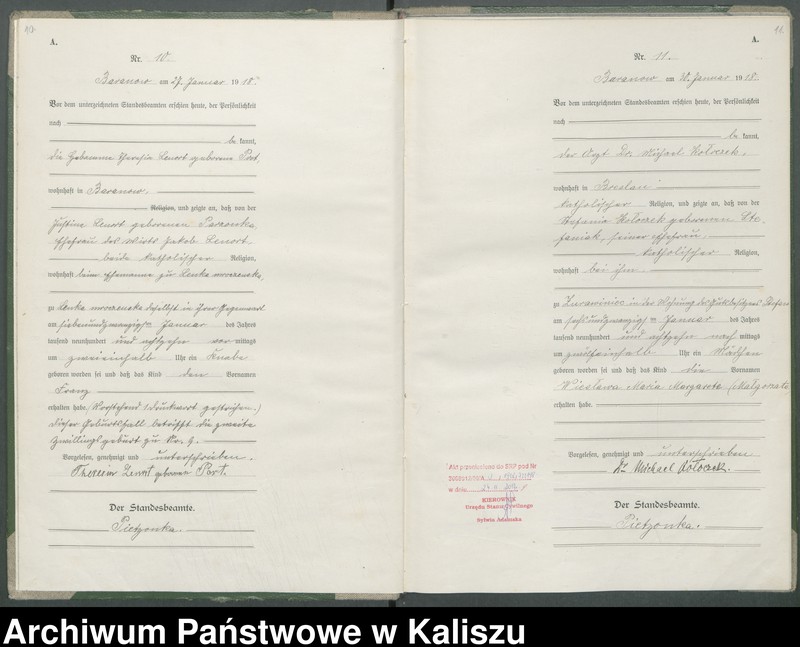 10.
A.
Nr. 10.
Baranow am 27. Januar 1918.
Vor dem unterzeichneten Standesbeamten erschien heute, der Persönlichkeit
nach
be kannt,
die Hebamme Theresia Lenort geborene Port,
wohnhaft in Baranow.
Religion, und zeigte an, daß von der
Justine Lenort geborenen Parzonka,
Ehefrau des Wirts Jakob Lenort
beide katholischer Religion,
wohnhaft beim Ehemanne zu Lenka mroczenska,
zu Lenka mroczenska daselbst in ihrer Gegenwart
am siebenundzwanzigsten Januar des Jahres
tausend neunhundert und achtzehn vor mittags
um zweieinhalb Uhr ein Knabe
geboren worden sei und daß das Kind den Vornamen
Franz
erhalten habe. (Vorstehend 1 Druckwort gestrichen.)
Dieser Geburtsfall betrifft die zweite
Zwillingsgeburt zu Nr. 9.
Vorgelesen, genehmigt und unterschrieben.
Theresia Lenort geborene Port.
Der Standesbeamte.
Pietzonka.
11.
A.
Nr. 11.
Baranow am Januar 1918.
Vor dem unterzeichneten Standesbeamten erschien heute, der Persönlichkeit
nach
be kannt,
der Arzt Dr. Michael Kołoczek,
wohnhaft in Breslau
katholischer Religion, und zeigte an, daß von der
Stefania Kołoczek geborenen Ste-
faniak, seiner Ehefrau,
katholischer Religion,
wohnhaft bei ihm.
zu Żurawiniec in der Wohnung des Gutsbesitzers Stefaniak
am sechsundzwanzigsten Januar des Jahres
tausend neunhundert und achtzehn nach mittags
um Uhr ein Mädchen
geboren worden sei und daß das Kind die Vornamen
Wiesława Maria Margareta (Małgorzata)
erhalten habe.
Vorgelesen, genehmigt und unterschrieben
Dr. Michael Kołoczek.
AM przeniesiono do SRP pod Nr
w dniu
KIEROWNIK
Urzędu Stanu Cywilnego
Sylwia Adamska
Der Standesbeamte.
Pietzonka.
Archiwum Państwowe w Kaliszu